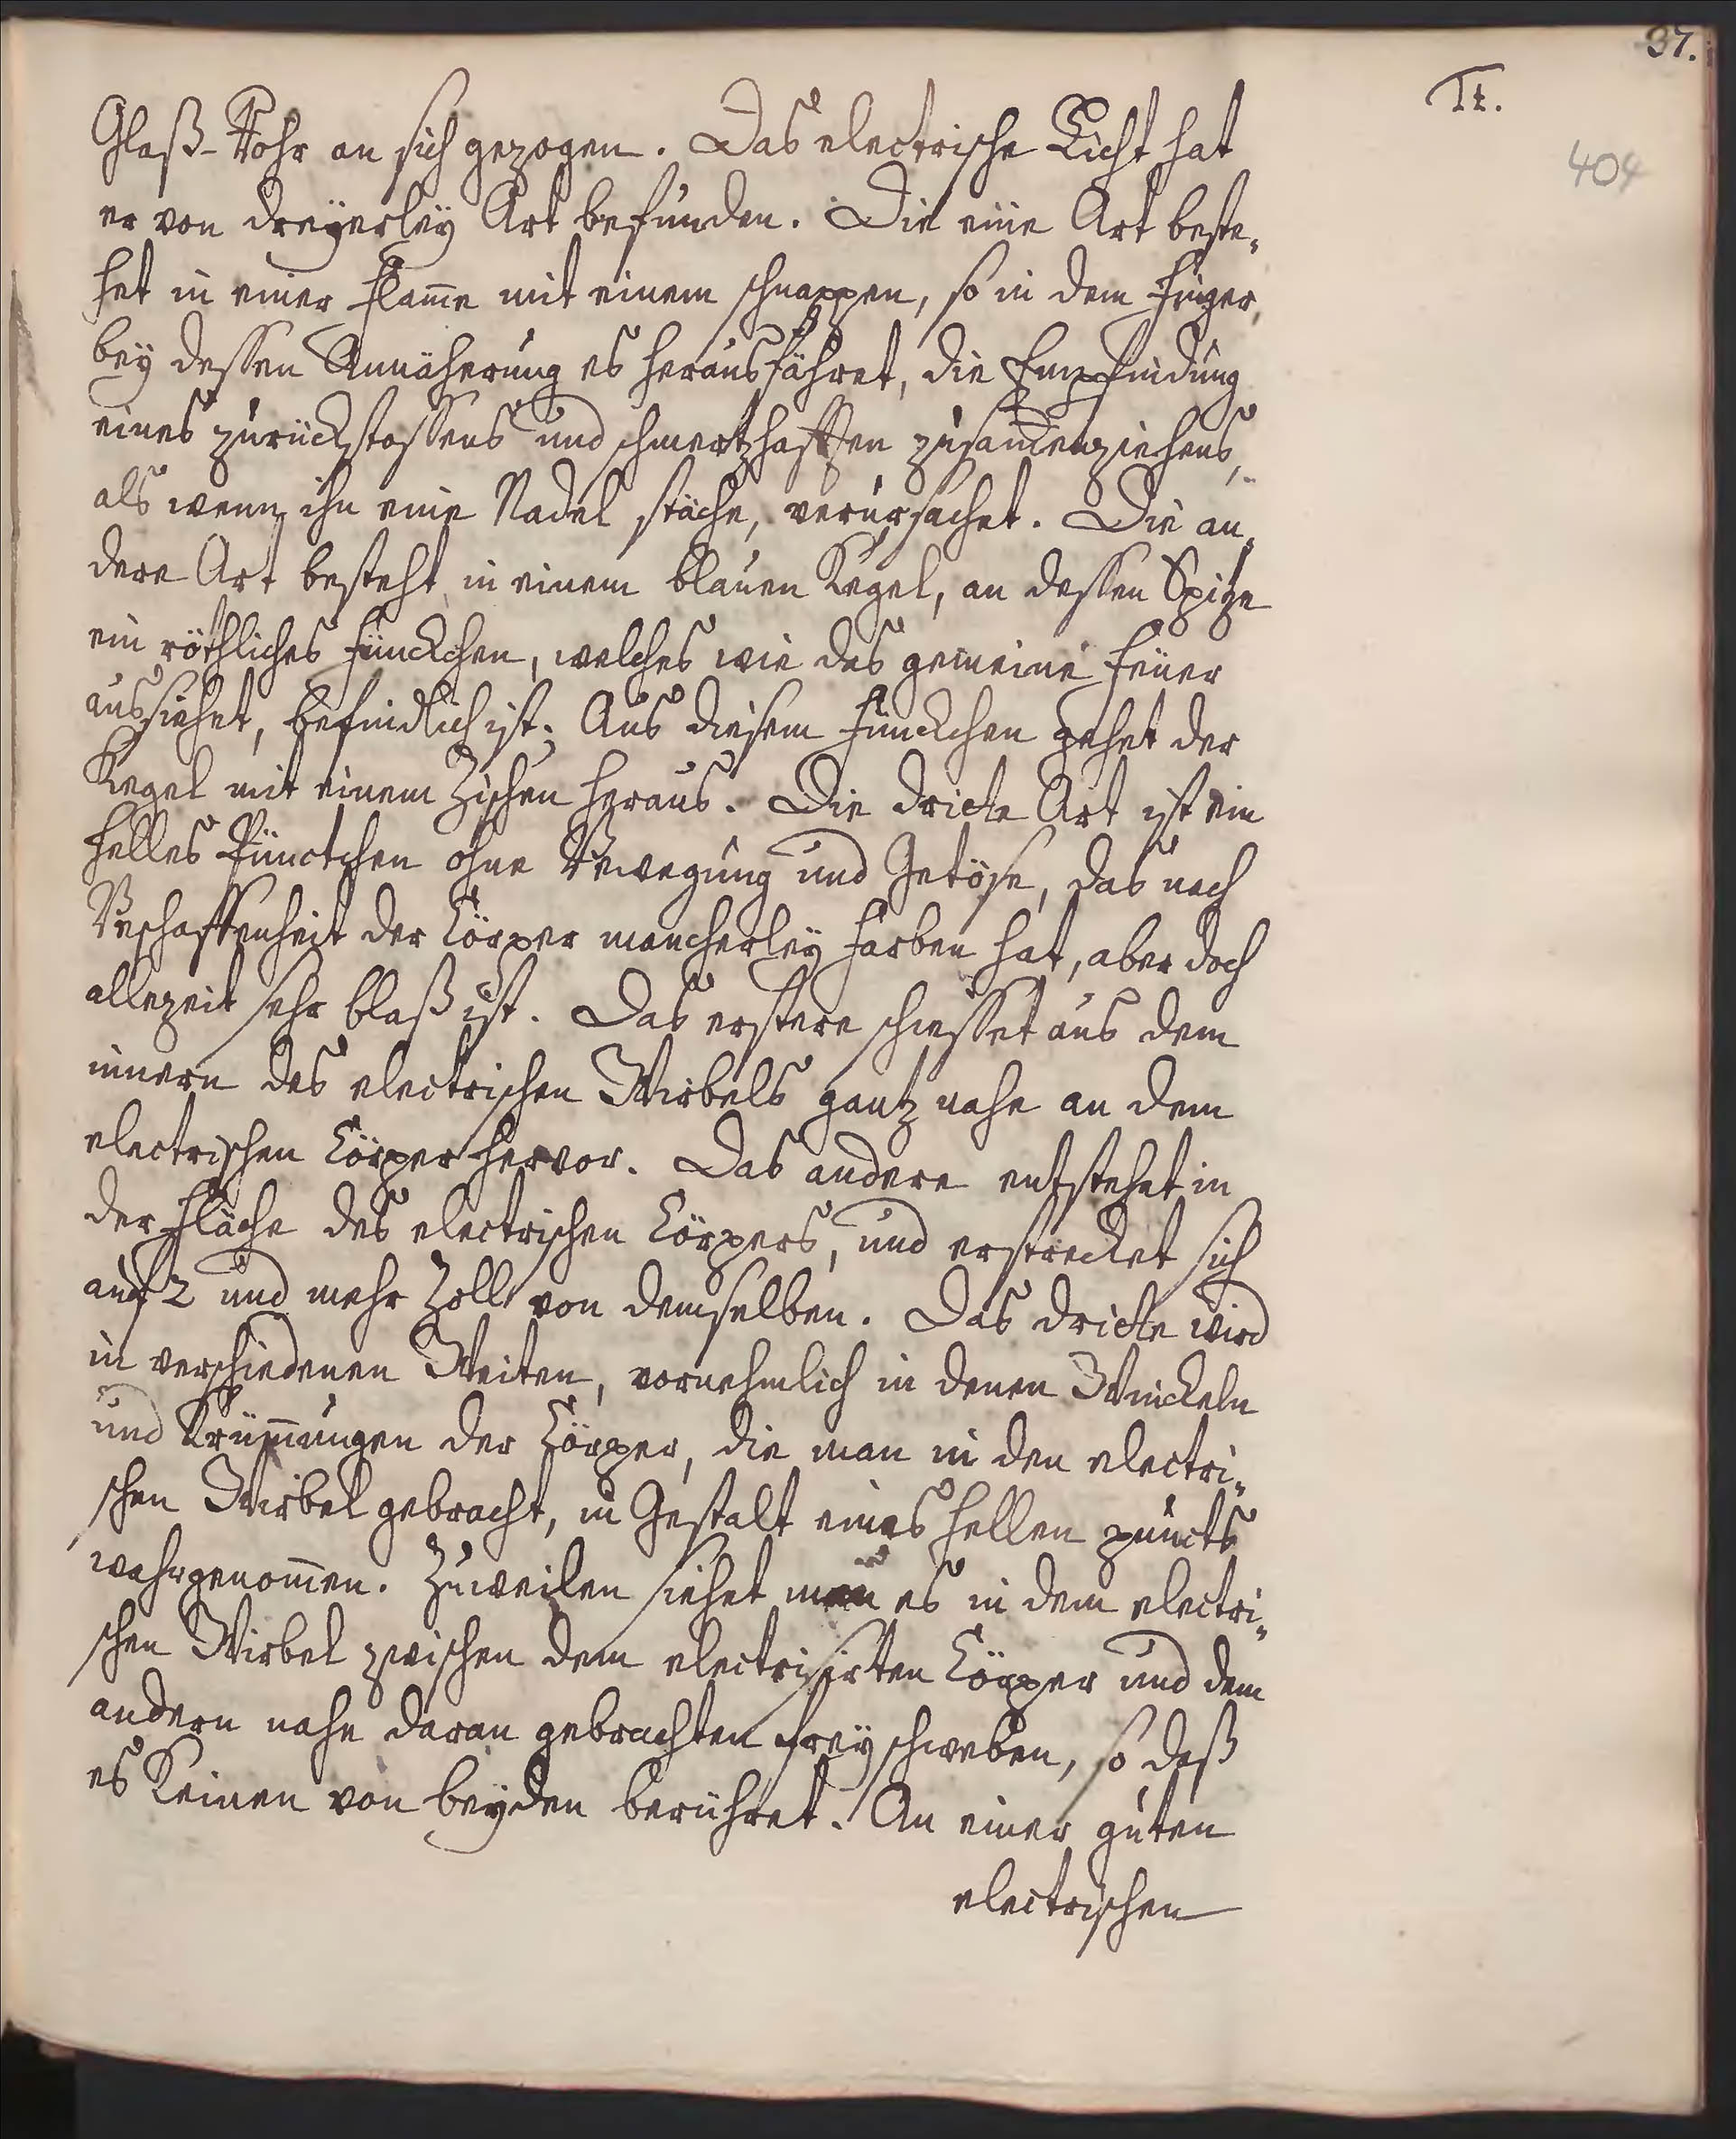 37.
Tt.
404
Glaß-Rohr an sich gezogen. Das electrische Licht hat
er von dreyerley Art befunden. Die eine Art beste„
het in einer Flam̄e mit einem schnappen, so in dem Finger,
bey dessen Annäherung es herausfähret, die Empfindung
eines zurückstossens und schmertzhafften zusam̄enziehens,
als wenn ihn eine Nadel stäche, verursachet. Die an„
dere Art besteht in einem blauen Kegel, an dessen Spitze
ein röthliches Fünckchen, welches wie das gemeine Feuer
aussiehet, befindlich ist; Aus diesem Fünckchen gehet der
Kegel mit einem Zischen heraus. Die dritte Art ist ein
helles Pünctchen ohne Bewegung und Getöse, das nach
Beschaffenheit der Cörper mancherley Farben hat, aber doch
allezeit sehr blaß ist. Das erstere schiesset aus dem
innern des electrischen Wirbels gantz nahe an dem
electrischen Cörper hervor. Das andere entstehet in
der Fläche des electrischen Cörpers, und erstrecket sich
auf 2 und mehr Zoll von demselben. Das dritte wird
in verschiedenen Weiten, vornehmlich in denen Winckeln
und Krüm̄ungen der Cörper, die man in den electri„
schen Wirbel gebracht, in Gestalt eines hellen puncts
wahrgenom̄en. Zuweilen siehet man es in dem electri„
schen Wirbel zwischen dem electrisirten Cörper und dem
andern nahe daran gebrachten frey schweben, so daß
es keinen von beyden berühret. An einer guten
electrischen